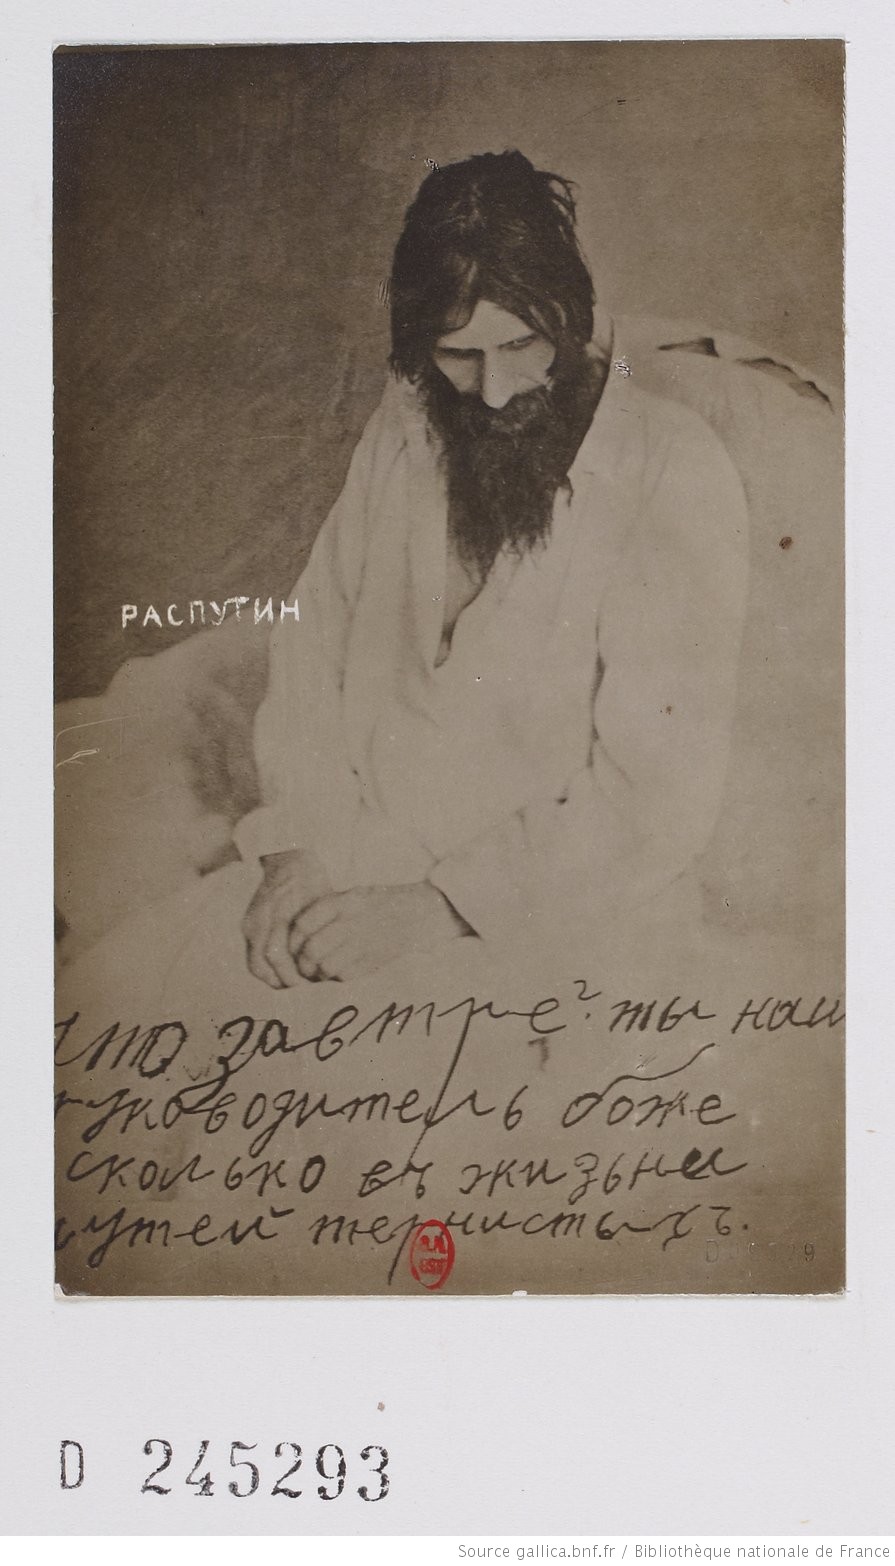 РАСПУТИН
что завтре? ты наш
руководитель боже
сколько въ жизьни
путей тернистыхъ.
D 245293
Source gallica.bnf.fr / Bibliothèque nationale de France